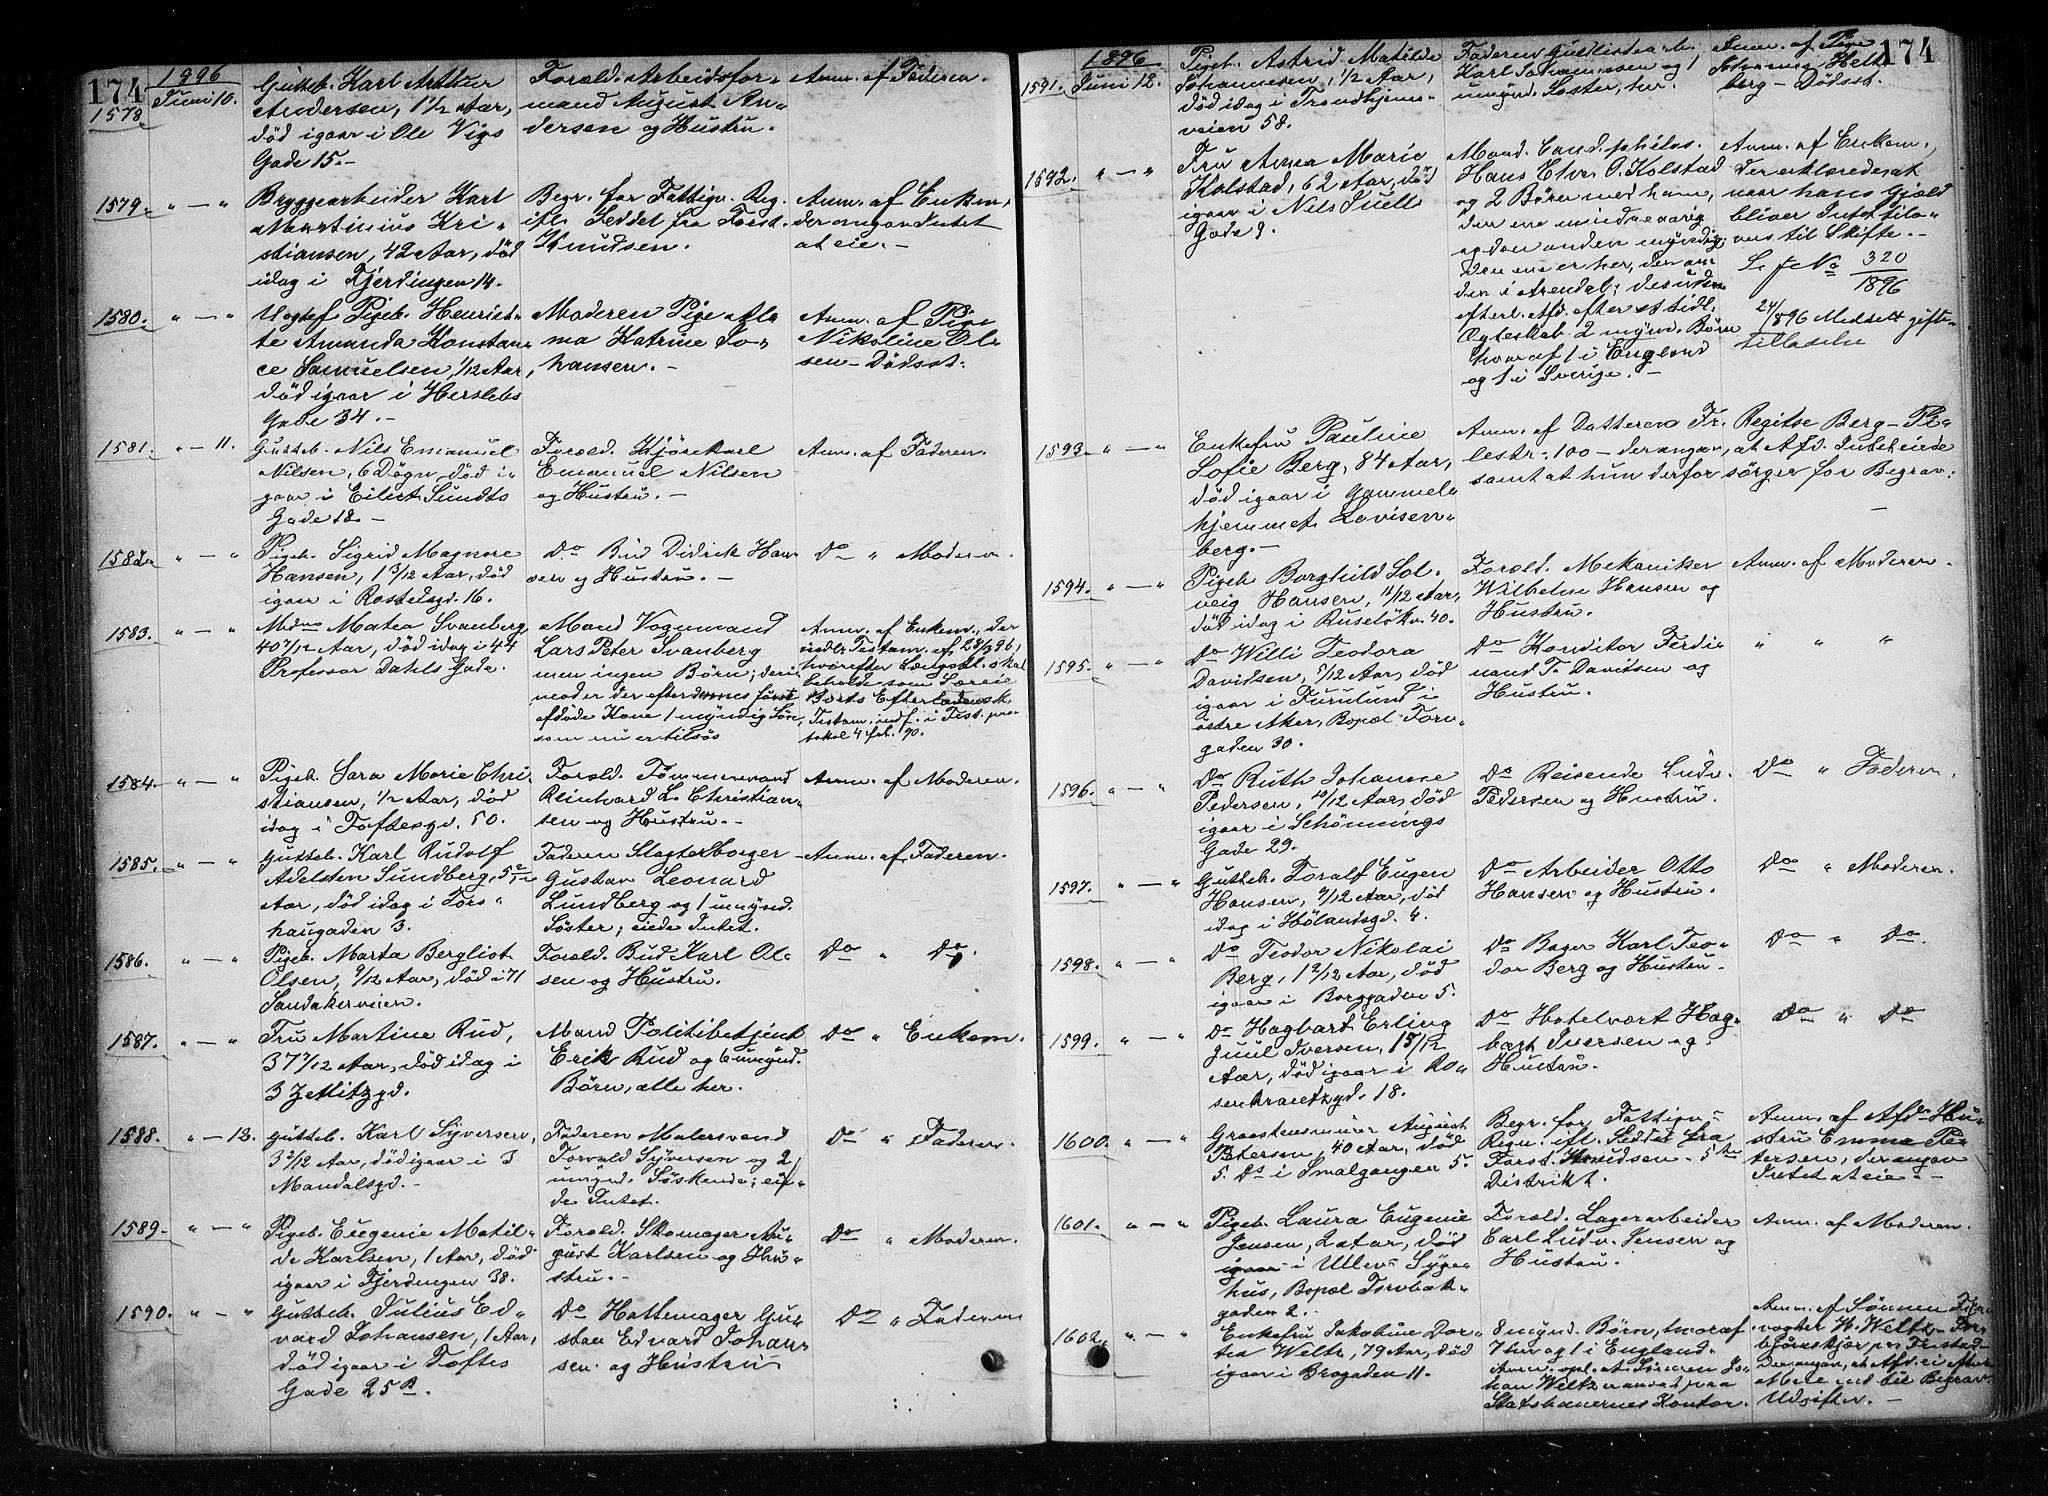 174
1896
1578
Juni 10.
Gutteb. Karl Arthur
Andersen, 1 1/2 Aar,
død igaar i Ole Vigs
Gade 15.-
Foræld. Arbeidsfor-
mand August An-
dersen og Hustru.
Anm. af Faderen.
1579. " — "
Bryggearbeider Karl
Martinius Kri-
stiansen, 42 Aar, død
idag i Fjerdingen 14.
Begr. for Fattigv. Reg.
ifl. Seddel fra Forst.
Knudsen.
Anm. af Enken,
der angav Intet
at eie.-
1580. " — "
Uægtef. Pigeb. Henriet-
te Amanda Konstan-
ce Samuelsen, 1/12 Aar,
død igaar i Herslebs
Gade 34.-
Moderen Pige Al-
ma Katrine Jo-
hansen.-
Anm. af Pige
Nikoline Ol-
sen - Dødsst.
1581. " — 11.
Gutteb. Nils Emanuel
Nilsen, 6 Døgn, død i-
gaar i Eilert Sundts
Gade 18.-
Foræld. Kjørekarl
Emanuel Nilsen
og Hustru.-
Anm. af Faderen.
1582. " — "
Pigeb. Sigrid Magnore
Hansen, 1 3/12 Aar, død
igaar i Rostedsgd. 16.
Do Bud Didrik Han-
sen og Hustru.-
Do " Moderen.
1583. " — "
Mdme Matea Svanberg
40 7/12 Aar, død idag i 44
Professor Dahls Gade.
Mand Vognmand
Lars Peter Svanberg
men ingen Børn; deri-
mod er der efter dennes først
afdøde Kone 1 myndig Søn,
som nu er tilsøs
Anm. af Enkem., der
indl. Testam. af 28/3 96,
hvorefter Længstl. skal
beholde som Særeie
Bortg. Efterladensk.
Testam. indf. i Test. pro-
tokol 4 fol. 90.
1584. " — "
Pigeb. Sara Marie Chri-
stiansen, 1/2 Aar, død
idag i Toftesgd. 50.
Foræld. Tømmermand
Reinhard L. Christian-
sen og Hustru.-
Anm. af Moderen.
1585. " — "
Gutteb. Karl Rudolf
Adelsten Lundberg, 5 2/12
Aar, død idag i Tors-
haugaden 3.
Faderen Slagterborger
Gustav Leonard
Lundberg og 1 umynd.
Søster; eiede Intet.
Anm. af Faderen.
1586. " — "
Pigeb. Marta Bergliot
Olsen, 9/12 Aar, død i 71
Sandakerveien.
Foræld. Bud Karl Ol-
sen og Hustru.
Do " Do.
1587. " — "
Fru Martine Rud,
37 7/12 Aar, død idag i
3 Zetlitzgd.
Mand Politibetjent
Erik Rud og 6 umynd.
Børn, alle her.
Do " Enkem.
1588. " — 12.
Gutteb. Karl Syversen,
3 3/12 Aar, død igaar i 3
Mandalsgd.-
Faderen Malersvend
Torvald Syversen og 2
umynd. Søskende; eie-
de Intet.
Do " Faderen.
1589. " — "
Pigeb. Eugenie Matil-
de Karlsen, 1 Aar, død
igaar i Fjerdingen 38.
Foræld. Skomager Au-
gust Karlsen og Hu-
stru.-
Do " Moderen.
1590. " — "
Gutteb. Julius Ed-
vard Johansen, 1 Aar,
død igaar i Toftes
Gade 25 B.
Do Hattemager Gu-
stav Edvard Johan-
sen og Hustru
Do " Faderen
174
1896
1591. Juni 12.
Pigeb. Astrid Matilde
Johannesen, 1/2 Aar,
død idag i Trondhjems-
veien 58.
Faderen Gullistearb.
Karl Johannesen og 1
umynd. Søster, her.
Anm. af Pige
Johanna Helt-
berg - Dødsst.
1592. " — "
Fru Anna Marie
Kolstad, 62 Aar, død
igaar i Nils Juels
Gade 9.
Mand. Cand. philos.
Hans Chr. O. Kolstad
og 2 Børn med ham,
den ene mindreaarig
og den anden myndig,
den ene er her, den an-
den i Arendal; desuden
efterl. Afd. efter et tidl.
Ægteskab 2 mynd. Børn
hvoraf 1 i England
og 1 i Sverige.-
Anm. af Enkem.,
der erklærede, at
naar hans Gjæld
bliver Intet tilo-
vers til Skifte.-
S. f. No 320/1896
24/8 96 Meddelt gifte-
tilladelse
1593. " — "
Enkefru Pauline
Sofie Berg, 84 Aar,
død igaar i Gammel-
hjemmet Lovisen-
berg.-
Anm. af Datteren Fr. Regitse Berg - Pi-
lestr. 100 - der angav, at Afd. Intet eiede
samt at hun derfor sørger for Begrav.
-
1594. " — "
Pigeb. Borghild Sol-
veig Hansen, 11/12 Aar,
død idag i Ruseløkv. 40.
Foræld. Mekaniker
Wilhelm Hansen og
Hustru.
Anm. af Moderen.
1595. " — "
Do Willi Teodora
Davidsen, 5/12 Aar, død
igaar i Furulund i
østre Aker, Bopæl: Torv-
gaden 30.
Do Konditor Ferdi-
nand T. Davidsen og
Hustru.
" " "
1596. " — "
Do Ruth Johanne
Pedersen, 10/12 Aar, død
igaar i Schønnings
Gade 29.
Do Reisende Ludv.
Pedersen og Hustru.
Do " Faderen.
1597. " — "
Gutteb. Toralf Eugen
Hansen, 9/12 Aar, død
idag i Hølandsgd. 4.
Do Arbeider Otto
Hansen og Hustru.
Do " Moderen.
1598. " — "
Do Teodor Nikolai
Berg, 1 2/12 Aar, død
igaar i Borggaden 5.
Do Bager Karl Teo-
dor Berg og Hustru.
Do " Do.
1599. " — "
Do Hagbart Erling
Juul Iversen, 1 5/12
Aar, død igaar i Ro-
senkrantzgd. 18.
Do Hotelvært Hag-
bart Iversen og
Hustru.
Do " Do
1600. " — "
Graastensmurer August
Petersen, 40 Aar, død
5. Ds i Smalgangen 5.
Begr. for Fattigv.
Regn. ifl. Seddel fra
Forst. Knudsen - 5te
Distrikt.
Anm. af Afd. Hu-
stru Emma Pe-
tersen, der angav
Intet at eie.-
1601. " — "
Pigeb. Laura Eugenie
Jensen, 2 Aar, død
igaar i Ullev. Syge-
hus, Bopæl Torvbak-
gaden 2.
Foræld. Lagerarbeider
Carl Ludv. Jensen og
Hustru.
Anm. af Moderen.
1602. " — "
Enkefru Jakobine Dor-
tea Weltz, 79 Aar, død
igaar i Brogaden 11.
8 mynd. Børn, hvoraf
7 her og 1 i England.
Anm. opl. at Sønnen Jo-
han Weltz er ansat paa
Statsbanernes Kontor.
Anm. af Sønnen Fyr-
vogter H. Weltz - Tor-
bjørnskjær pr. Fr.stad-
der angav, at Afd. ei efterl.
Mere end til Begrav.
Udgifter.-